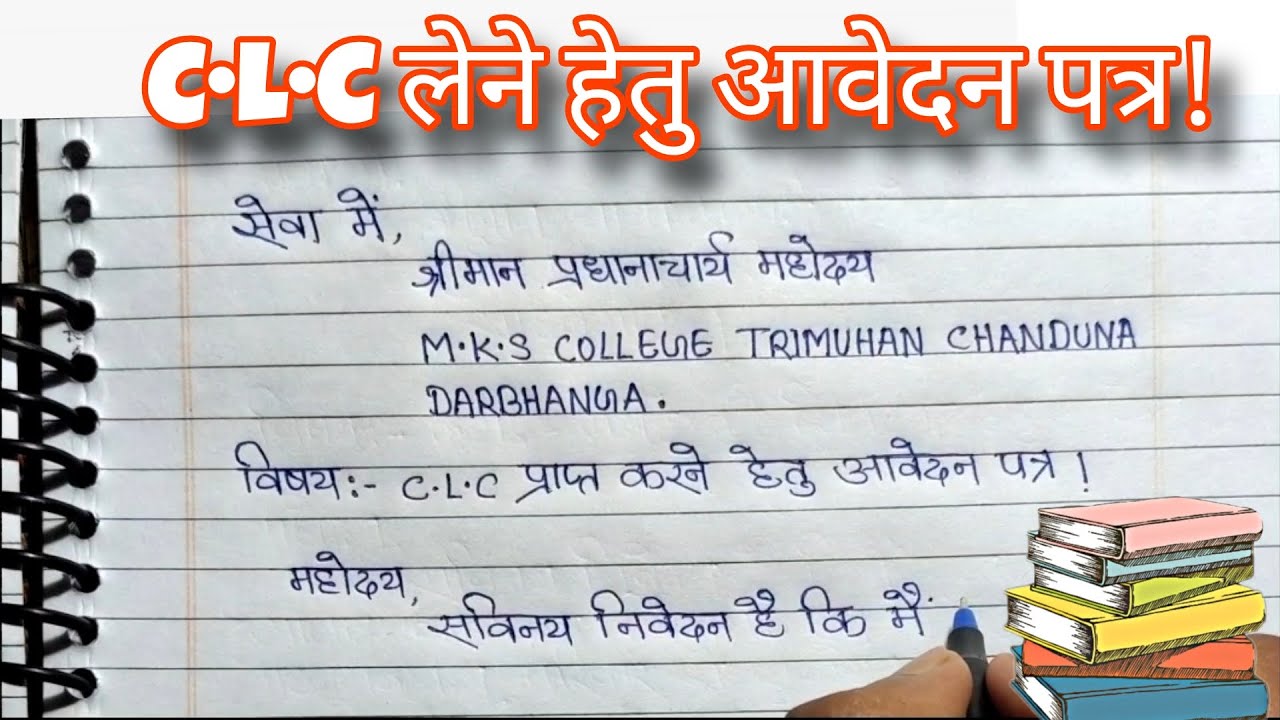 C•L•C लेने हेतु आवेदन पत्र!
सेवा में,
श्रीमान प्रधानाचार्य महोदय
M.K.S COLLEGE TRIMUHAN CHANDUNA
DARBHANGA.
विषय:- C.L.C प्राप्त करने हेतु आवेदन पत्र !
महोदय,
सविनय निवेदन है कि मैं